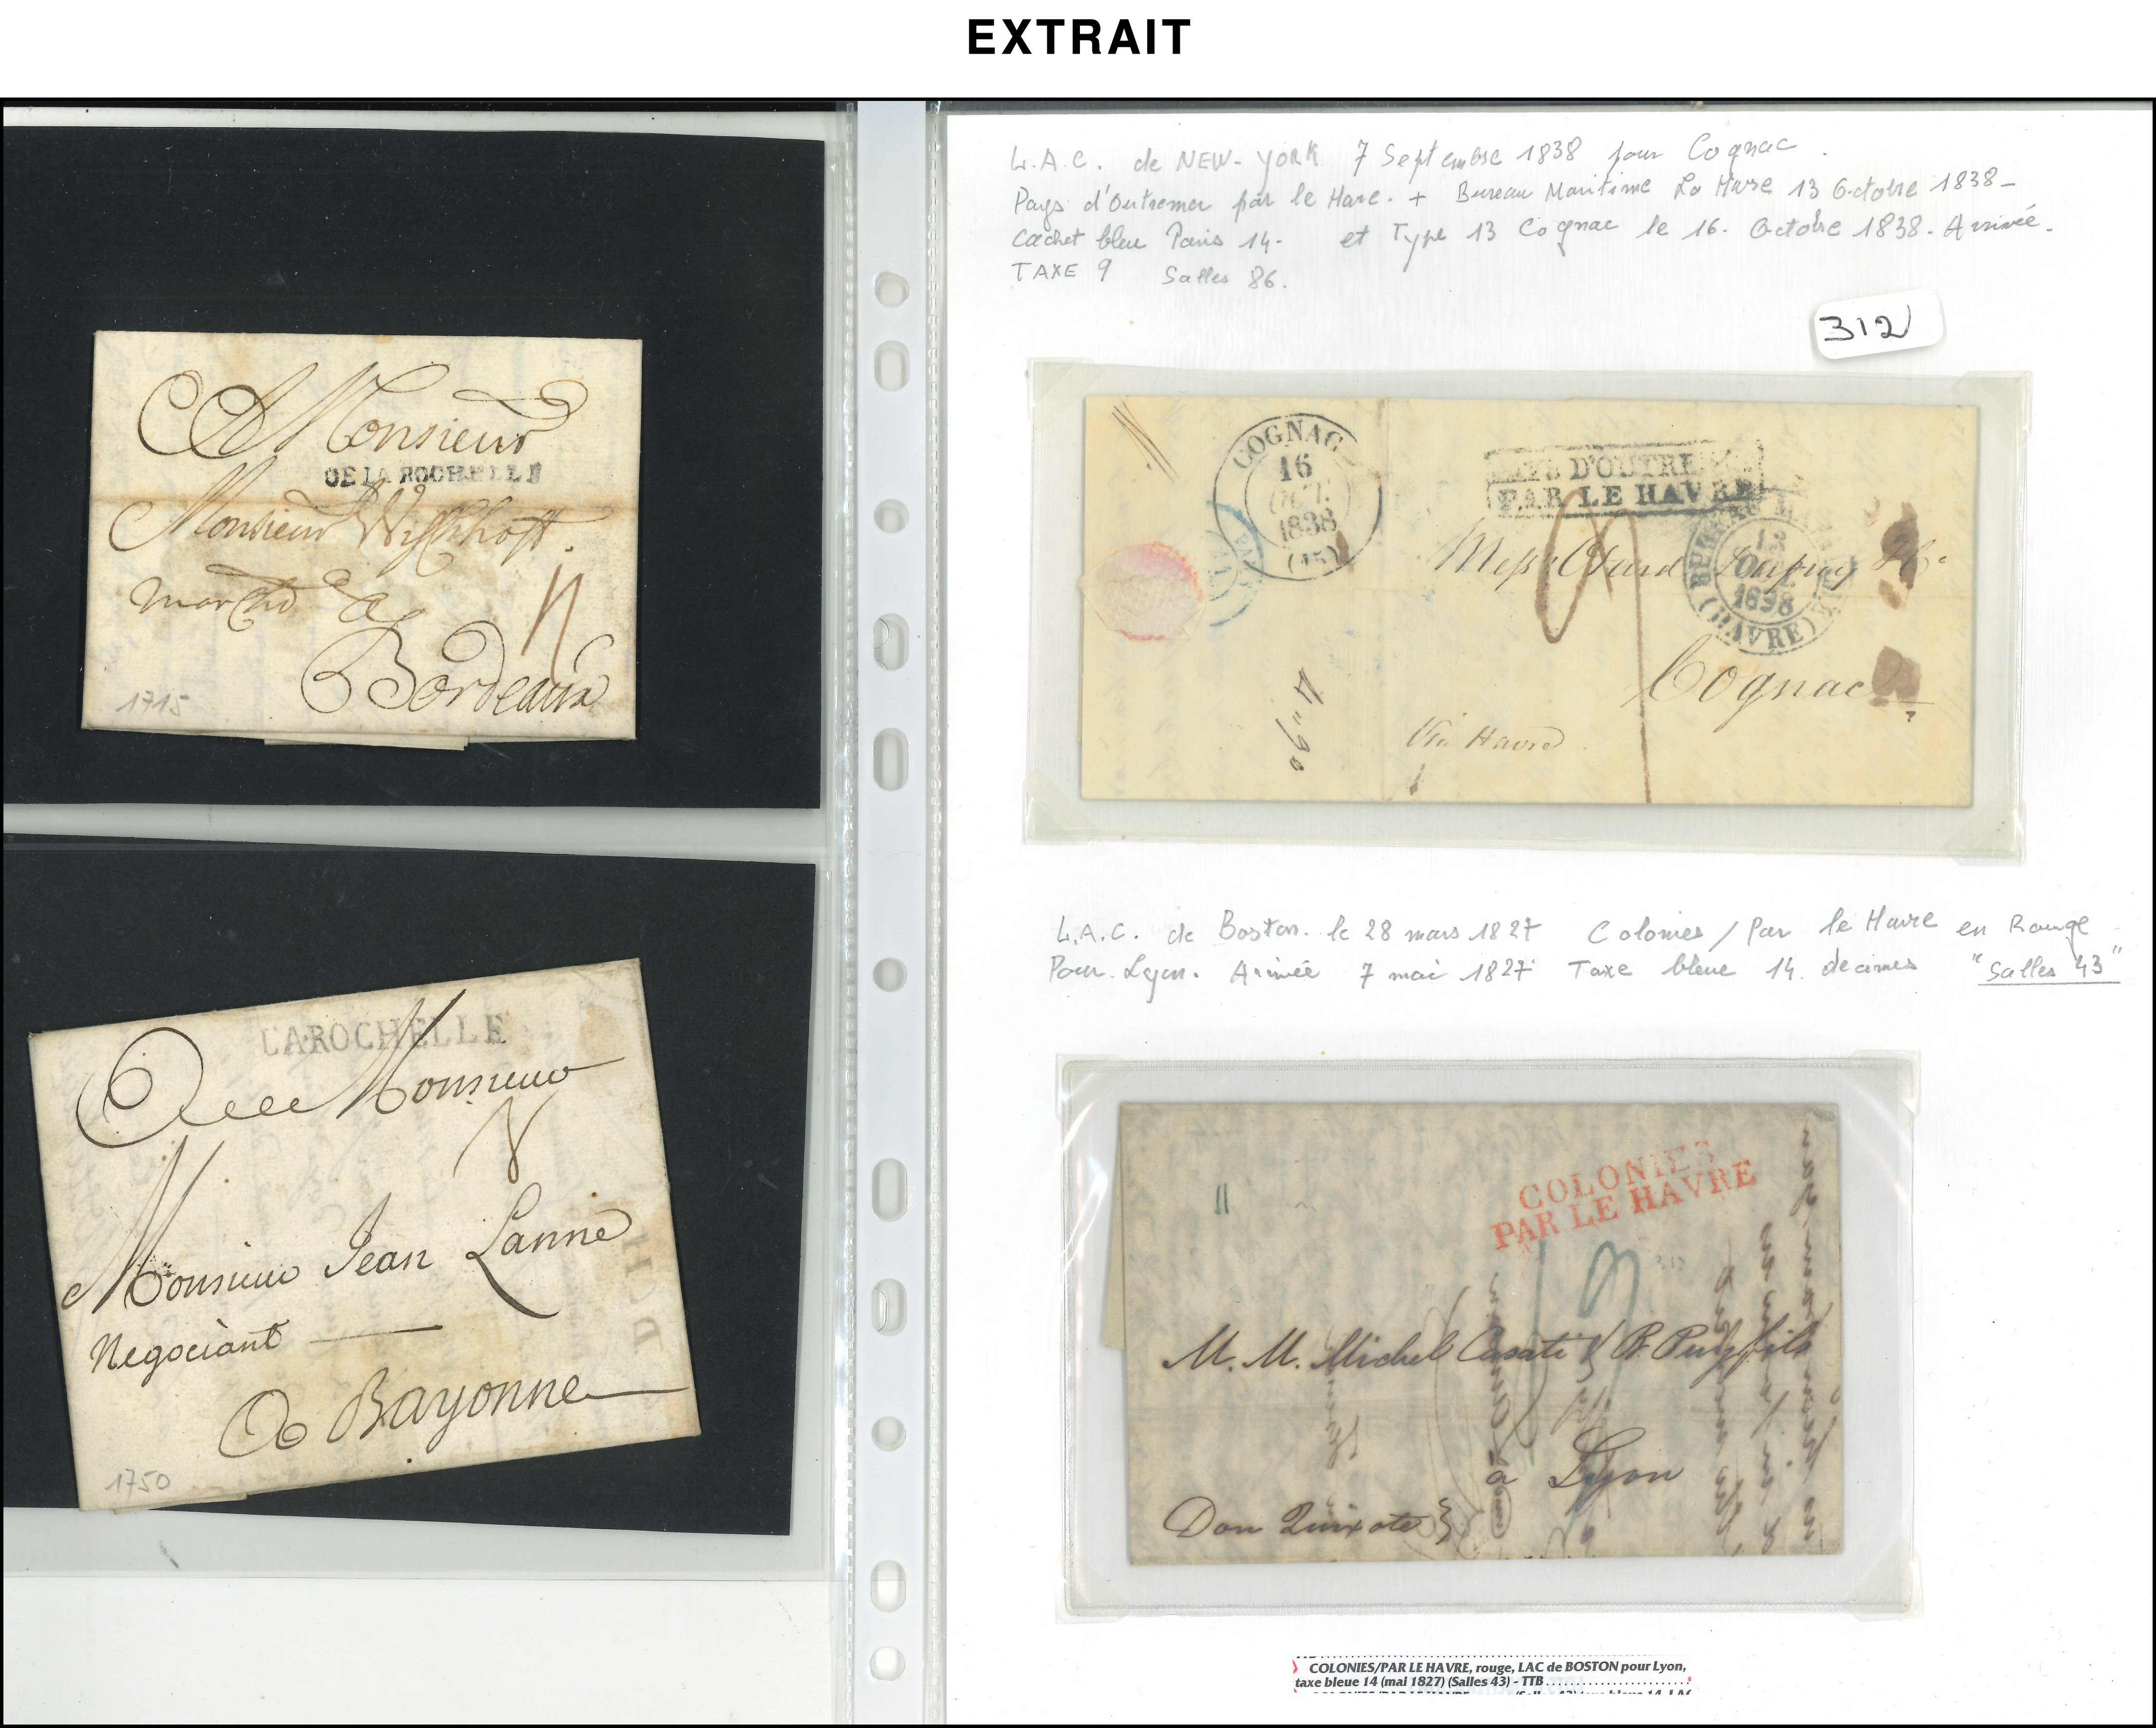 EXTRAIT
A Monsieur
DE LA ROCHELLE
Monsieur
march'd a
Bordeaux
1715
LAROCHELLE
A Monsieur
Monsieur Jean Lanne
Negociant
A Bayonne
1750
L.A.C. de NEW-YORK 7 Septembre 1838 pour Cognac.
Pays d'outremer par le Havre. + Bureau Maritime Le Havre 13 Octobre 1838-
Cachet bleu Paris 14- et Type 13 Cognac le 16. Octobre 1838. Arrivée.
TAXE 9 Salles 86.
312
COGNAC
16
OCT.
1838
(15)
PAYS D'OUTRE
PAR LE HAVRE
BUREAU MARITIME
13
OCT.
1838
(HAVRE)
Cognac
Via Havre
L.A.C. de Boston. le 28 mars 1827 Colonies / Par le Havre en Rouge
Pour Lyon. Arrivée 7 mai 1827 Taxe bleue 14 decimes "Salles 43"
11
COLONIES
PAR LE HAVRE
M. M. Michel Casati & P. Puy fils
a Lyon
Don Quixote
COLONIES/PAR LE HAVRE, rouge, LAC de BOSTON pour Lyon,
taxe bleue 14 (mai 1827) (Salles 43) - TTB